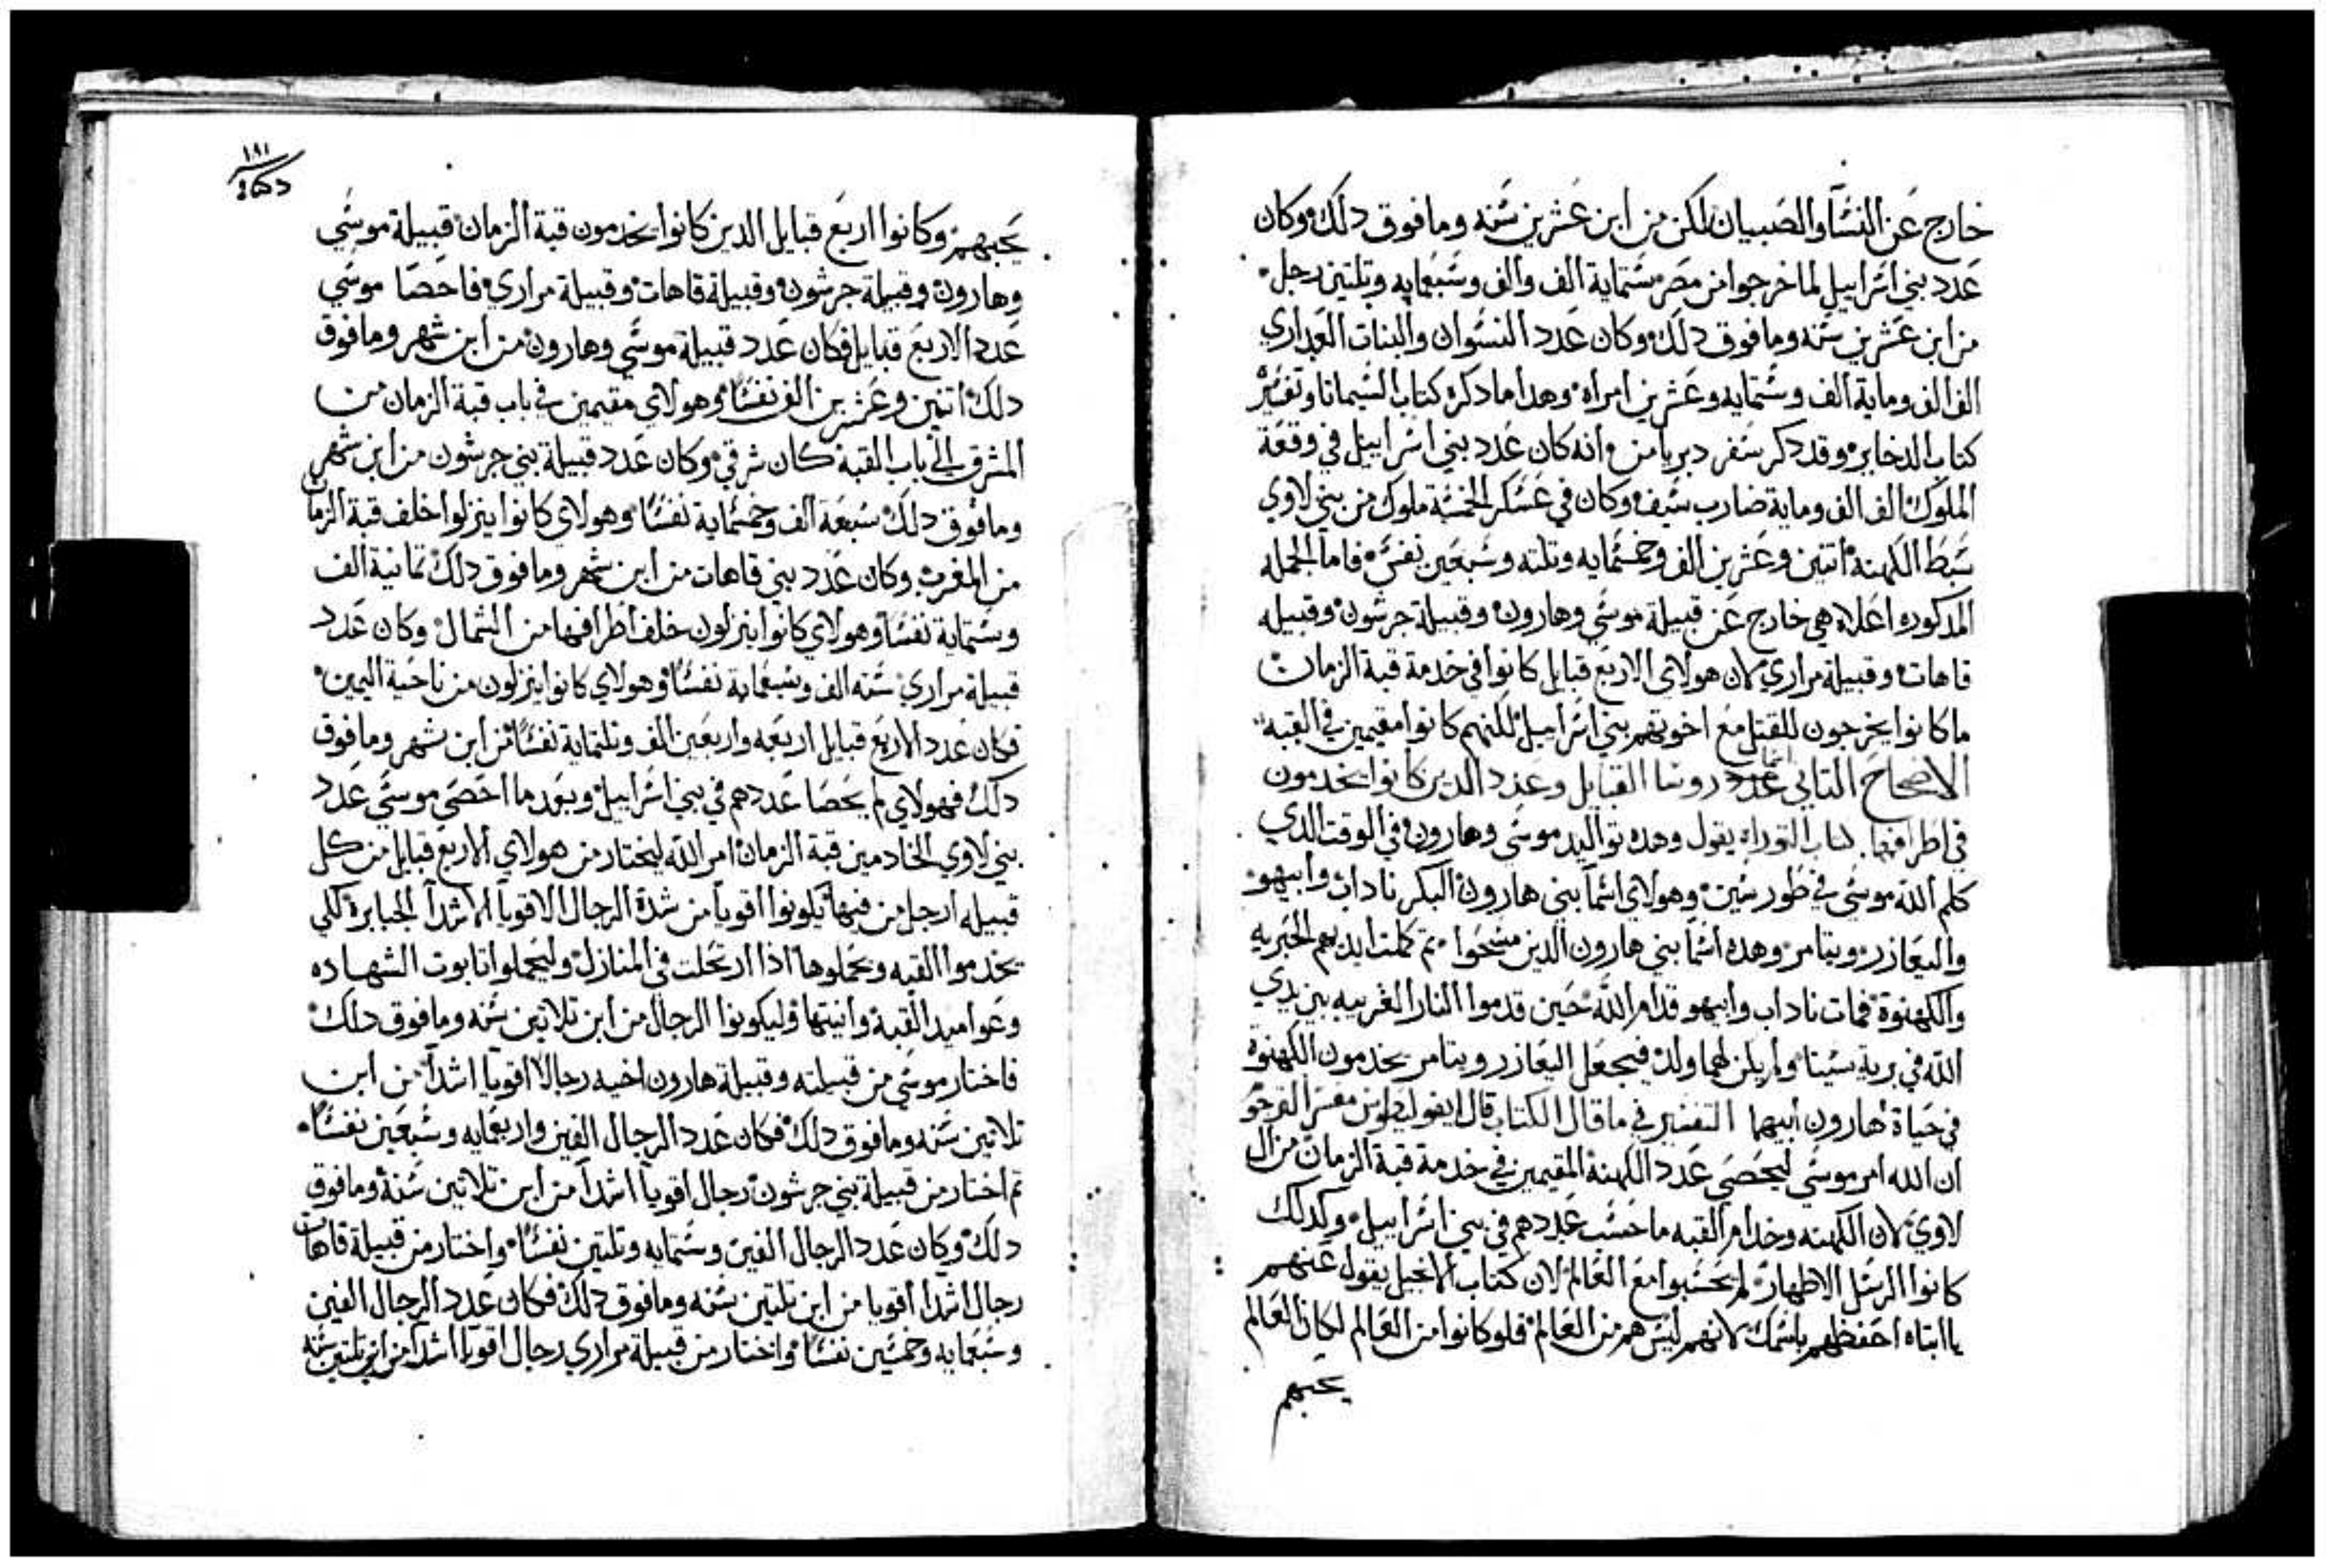 خارج عن النسا والصبيان لكن من ابن عشرين سنه وما فوق دلك وكان
عدد بني اسراييل لما خرجوا من مصر ستماية الف والف وسبعمايه وتلتين رجل
من ابن عشرين سنه وما فوق دلك وكان عدد النسوان والبنات العداري
الف الف وماية الف وستمايه وعشرين امراه وهدا ما دكره كتاب السيمانا وتفسير
كتاب الدخاير وقد دكر سفر دبريامن وانه كان عدد بني اسراييل في وقعة
الملوك الف الف وماية ضارب سيف وكان في عسكر الخمسة ملوك من بني لاوي
سبط الكهنه اتنين وعشرين الف وخمسمايه وتلته وسبعين نفس فاما الجمله
المدكوره اعلاه هي خارج عن قبيلة موسي وهارون وقبيلة جرشون وقبيله
قاهات وقبيلة مراري لان هولاي الاربع قبايل كانوا في خدمة قبة الزمان
ما كانوا يخرجون للقتل مع اخوتهم بني اسراييل لكنهم كانوا مقيمين في القبه
الاصحاح التاني عدد روسا القبايل وعدد الدين كانوا يخدمون
في اطرافها كتاب التوراه يقول وهده تواليد موسي وهارون في الوقت الدي
كلم الله موسي في طور سين وهولاي اسما بني هارون البكر ناداب وابيهو
واليعازر ويتامر وهده اسما بني هارون الدين مسحوا تم كملت ايديهم الحبريه
والكهنوة فمات ناداب وابيهو قدام الله حين قدموا النار الغريبه بين يدي
الله في برية سينا ولم يكن لهما ولد فيجعل اليعازر ويتامر يخدمون الكهنوة
في حياة هارون ابيهما التفسير في ما قال الكتاب قال مفسر
ان الله امر موسي ليحصي عدد الكهنة المقيمين في خدمة قبة الزمان من ال
لاوي لان الكهنه وخدام القبه ما حسب عددهم في بني اسراييل وكدلك
كانوا الرسل الاطهار لم يحسبوا مع العالم لان كتاب الانجيل يقول عنهم
يا ابتاه احفظهم باسمك لانهم ليس هم من العالم فلو كانوا من العالم لكان العالم
يحبهم
١٩١
يحبهم وكانوا اربع قبايل الدين كانوا يخدمون قبة الزمان قبيلة موسي
وهارون وقبيلة جرشون وقبيلة قاهات وقبيلة مراري فاحصا موسي
عدد الاربع قبايل فكان عدد قبيلة موسي وهارون من ابن شهر وما فوق
دلك اتنين وعشرين الف نفسا وهولاي مقيمين في باب قبة الزمان من
المشرق الي باب القبة كان شرقي وكان عدد قبيلة بني جرشون من ابن شهر
وما فوق دلك سبعة الف وخمسماية نفسا وهولاي كانوا ينزلوا خلف قبة الزمان
من المغرب وكان عدد بني قاهات من ابن شهر وما فوق دلك تمانية الف
وستماية نفسا وهولاي كانوا ينزلون خلف اطرافها من الشمال وكان عدد
قبيلة مراري سته الف وسبعماية نفسا وهولاي كانوا ينزلون من ناحية اليمين
فكان عدد الاربع قبايل اربعه واربعين الف وتلتماية نفسا من ابن شهر وما فوق
دلك فهولاي لم يحصا عددهم في بني اسراييل وبعد ما احصي موسي عدد
بني لاوي الخادمين قبة الزمان امر الله ليختار من هولاي الاربع قبايل من كل
قبيله ارجل من فيها يكونوا اقويا من شدة الرجال الاقويا الاشدا الجبابرة لكي
يخدموا القبه ويحملوها ادا ارتحلت في المنازل وليحملوا تابوت الشهاده
وعواميد القبة وانيتها وليكونوا الرجال من ابن تلاتين سنه وما فوق دلك
فاختار موسي من قبيلته وقبيلة هارون اخيه رجالا اقويا اشدا من ابن
تلاتين سنه وما فوق دلك فكان عدد الرجال الفين واربعمايه وسبعين نفسا
تم اختار من قبيلة بني جرشون رجال اقويا اشدا من ابن تلاتين سنة وما فوق
دلك وكان عدد الرجال الفين وستمايه وتلتين نفسا واختار من قبيلة قاهات
رجال اشدا اقويا من ابن تلتين سنه وما فوق دلك فكان عدد الرجال الفين
وسبعمايه وخمسين نفسا واختار من قبيلة مراري رجال اقويا اشدا من ابن تلتين سنه